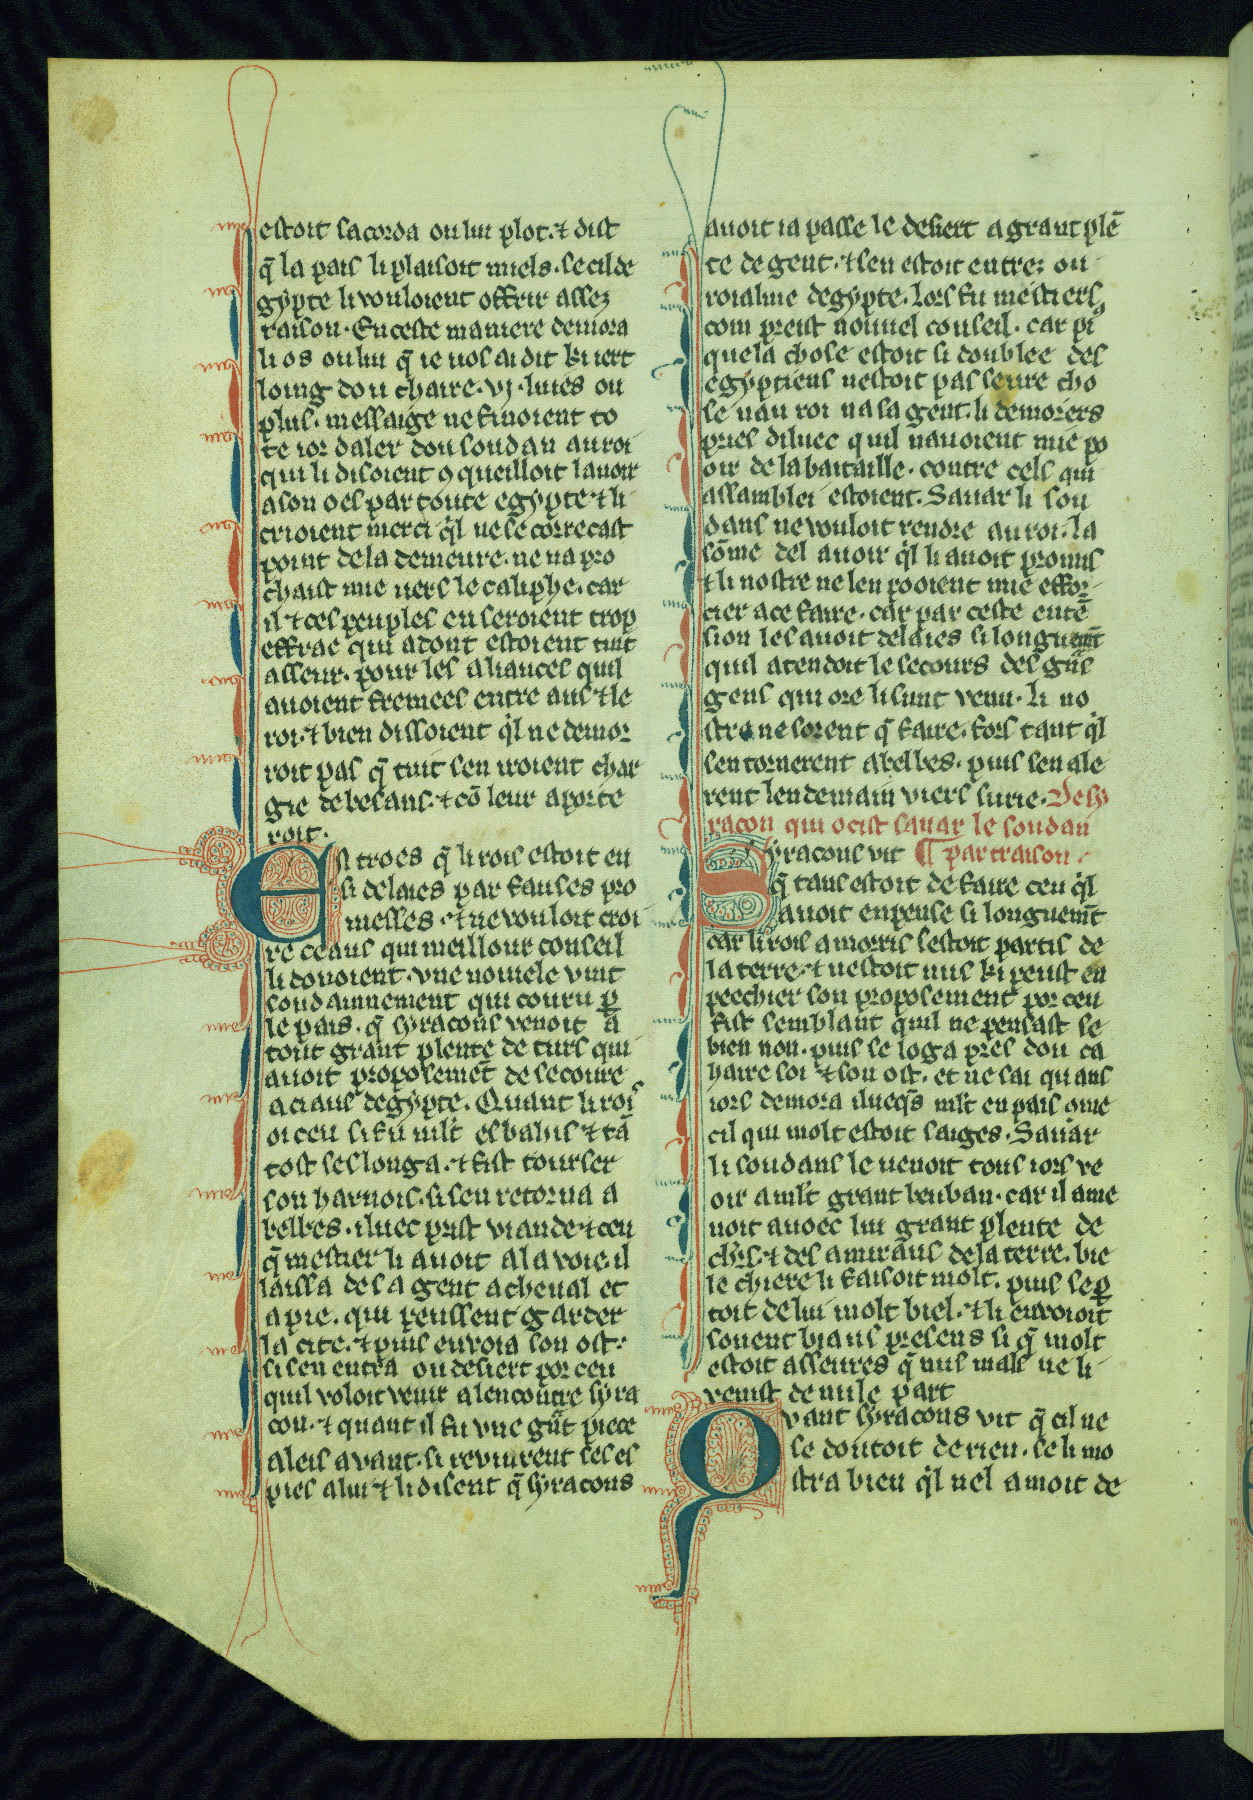 estoit sacorda ou lui plot. ⁊ dist
q̃ la pais li plaisoit miels. se cil de
gypte li vouloient offrir assez
raison. En ceste maniere demora
li os ou lui q̃ ie uos ai dit ki iert
loing dou chaire. vj. liues ou
plus. messaige ne finoient to
te ior daler dou soudan au roi
qui li disoient ꝯ queilloit lauoir
a son oes par toute egypte ⁊ li
crioient merci ql̃ ne se correcast
point de la demeure. ne na pro
chaist mie uers le caliphe. car
il ⁊ ces peuples en seroient trop
effrae qui adont estoient tuit
asseur. pour les aliances quil
auoient fremees entre aus ⁊ le
roi. ⁊ bien dissoient ql̃ ne demor
roit pas q̃ tuit sen iroient char
gie de besans. ⁊ cõ leur aporte
roit.
Estroes q̃ li rois estoit en
si delaies par fauses pro
messes. ⁊ ne vouloit croi
re ceaus qui meillour conseil
li donoient. vne nouuele vint
soudainnement qui couru ꝑ
le pais. q̃ syracons venoit a
tout grant plente de turs qui
auoit proposemẽt de secoure
a ciaus degypte. Quant li rois
oi ceu si fu ml̃t esbahis ⁊ tã
tost ses longa. ⁊ fist tourser
son harnois. si sen retorna a
belbes. iluec prist viande ⁊ ceu
q̃ mestier li auoit a la voie. il
laissa de sa gent a cheual et
a pie. qui peussent garder
la cite. ⁊ puis enuoia son ost.
si sen entra ou desiert por ceu
quil voloit venir a lencontre syra
con. ⁊ quant il fu vne grãt piece
aleis auant. si reuinrent ses es
pies a lui ⁊ li disent q̃ syracons
auoit ia passe le desiert a grant plẽ
te de gent. ⁊ sen estoit entrez ou
roialme degypte. lors fu mestiers
com preist nouuel conseil. car pͥ
que la chose estoit si doublee des
egyptiens nestoit pas seure cho
se nau roi na sa gent. li demorers
pries diluec quil nauoient mie po
oir de la bataille. contre cels qui
assamblei estoient. Sauar li sou
dans ne vouloit rendre au roi. la
sõme del auoir ql̃ li auoit promis
⁊ li nostre ne len pooient mie effor
cier a ce faire. car par ceste entẽ
sion les auoit delaies si longuemt̃
quil atendoit le secours des grãs
gens qui ore li sunt venu. li no
stre ne sorent q̃ faire. fors tant ql̃
sen tornerent a belbes. puis sen ale
rent lendemain viers surie. De sy
racon qui ocist sauar le soudan
Syracons vit ¶ par traison.
q̃ tans estoit de faire ceu ql̃
auoit enpense si longuemt̃
car li rois amorris sestoit partis de
la terre. ⁊ nestoit nus ki peust en
peechier son proposement por ceu
fist semblant quil ne pensast se
bien non. puis se loga pres dou ca
haire soi ⁊ son ost. et ne sai quans
iors demora ilueqs̃ ml̃t en pais ome
cil qui molt estoit saiges. Sauar
li soudans le uenoit tous iors ve
oir a ml̃t grant beuban. car il ame
noit auoec lui grant plente de
chlr̃s. ⁊ des amiraus de la terre. bie
le chiere li faisoit molt. puis se ꝑ
toit de lui molt biel. ⁊ li enuoioit
souent biaus presens si q̃ molt
estoit asseures q̃ nus mals ne li
venist de nule part
Qvant syracons vit q̃ cil ne
se doutoit de rien. se li mo
stra bien ql̃ nel amoit de